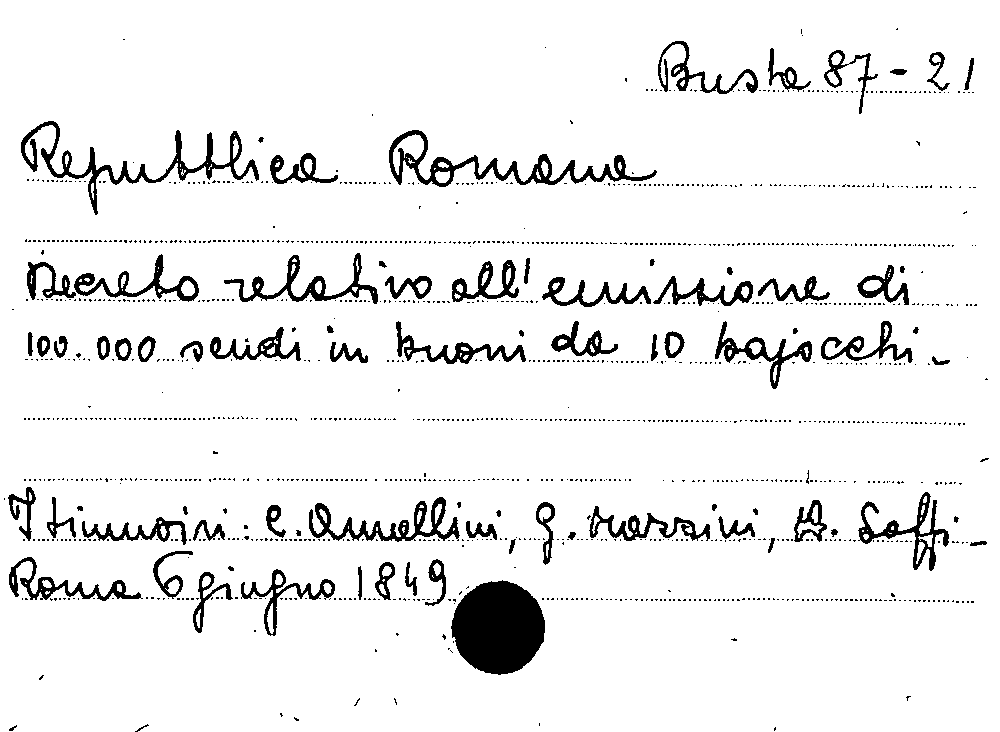 Busta 87-21
Repubblica Romana
Decreto relativo all'emissione di
100.000 scudi in buoni da 10 bajocchi.
I triumviri: C. Armellini, G. Mazzini, A. Saffi -
Roma 6 giugno 1849